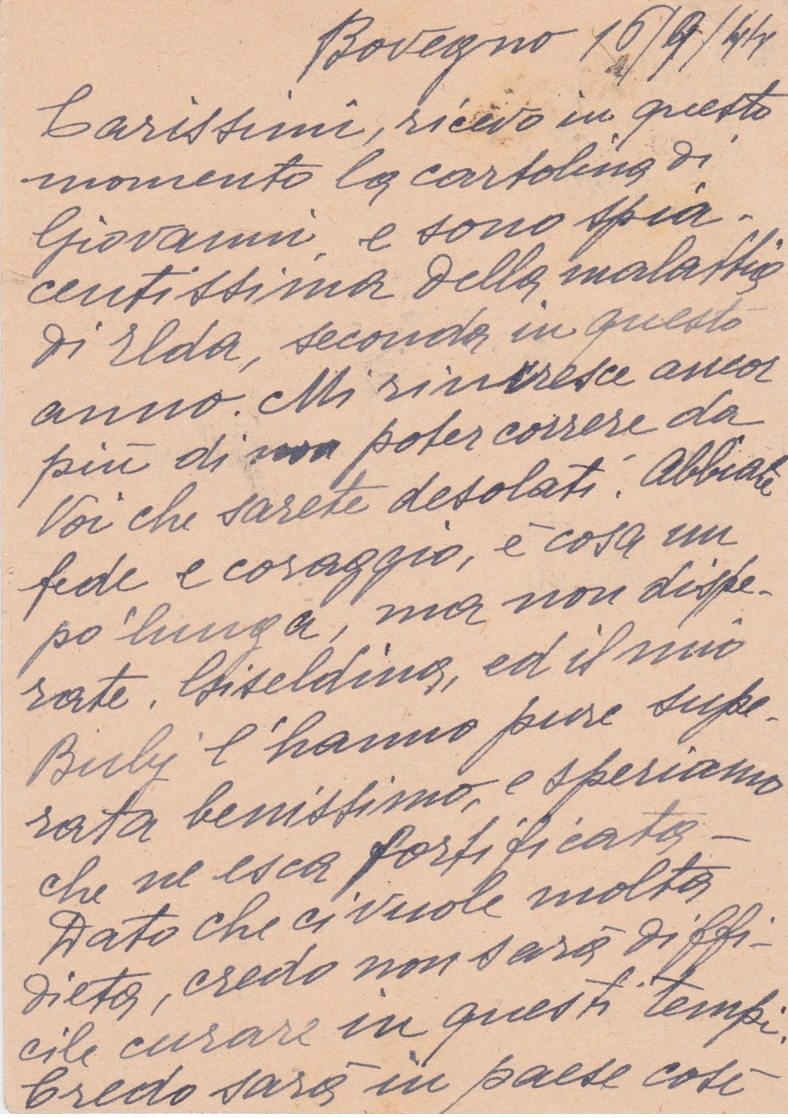 Bovegno 16/9/44
Carissimi, ricevo in questo
momento la cartolina di
Giovanni, e sono spia-
centissima della malattia
di Elda, seconda in questo
anno. Mi rincresce ancor
più di non poter correre da
Voi che sarete desolati. Abbiate
fede e coraggio, è cosa un
po' lunga, ma non dispe-
rate. Giseldina, ed il mio
Buby l'hanno pure supe-
rata benissimo, e speriamo
che ne esca fortificata -
Dato che ci vuole molta
dieta, credo non sarà diffi-
cile curare in questi tempi.
Credo sarà in paese così